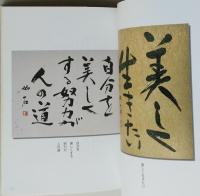 美しく
生きたい
自分を
美しく
する努力が
人の道